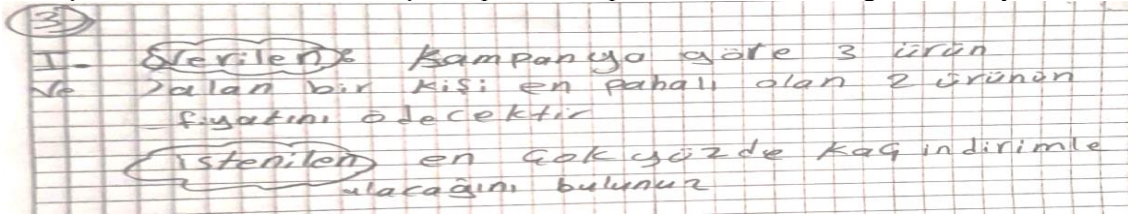 3
I- Verilen: Kampanya göre 3 ürün
alan bir kişi en pahalı olan 2 ürünün
fiyatını ödecektir
İstenilen en çok yüzde kaç indirimle
alacağını bulunuz